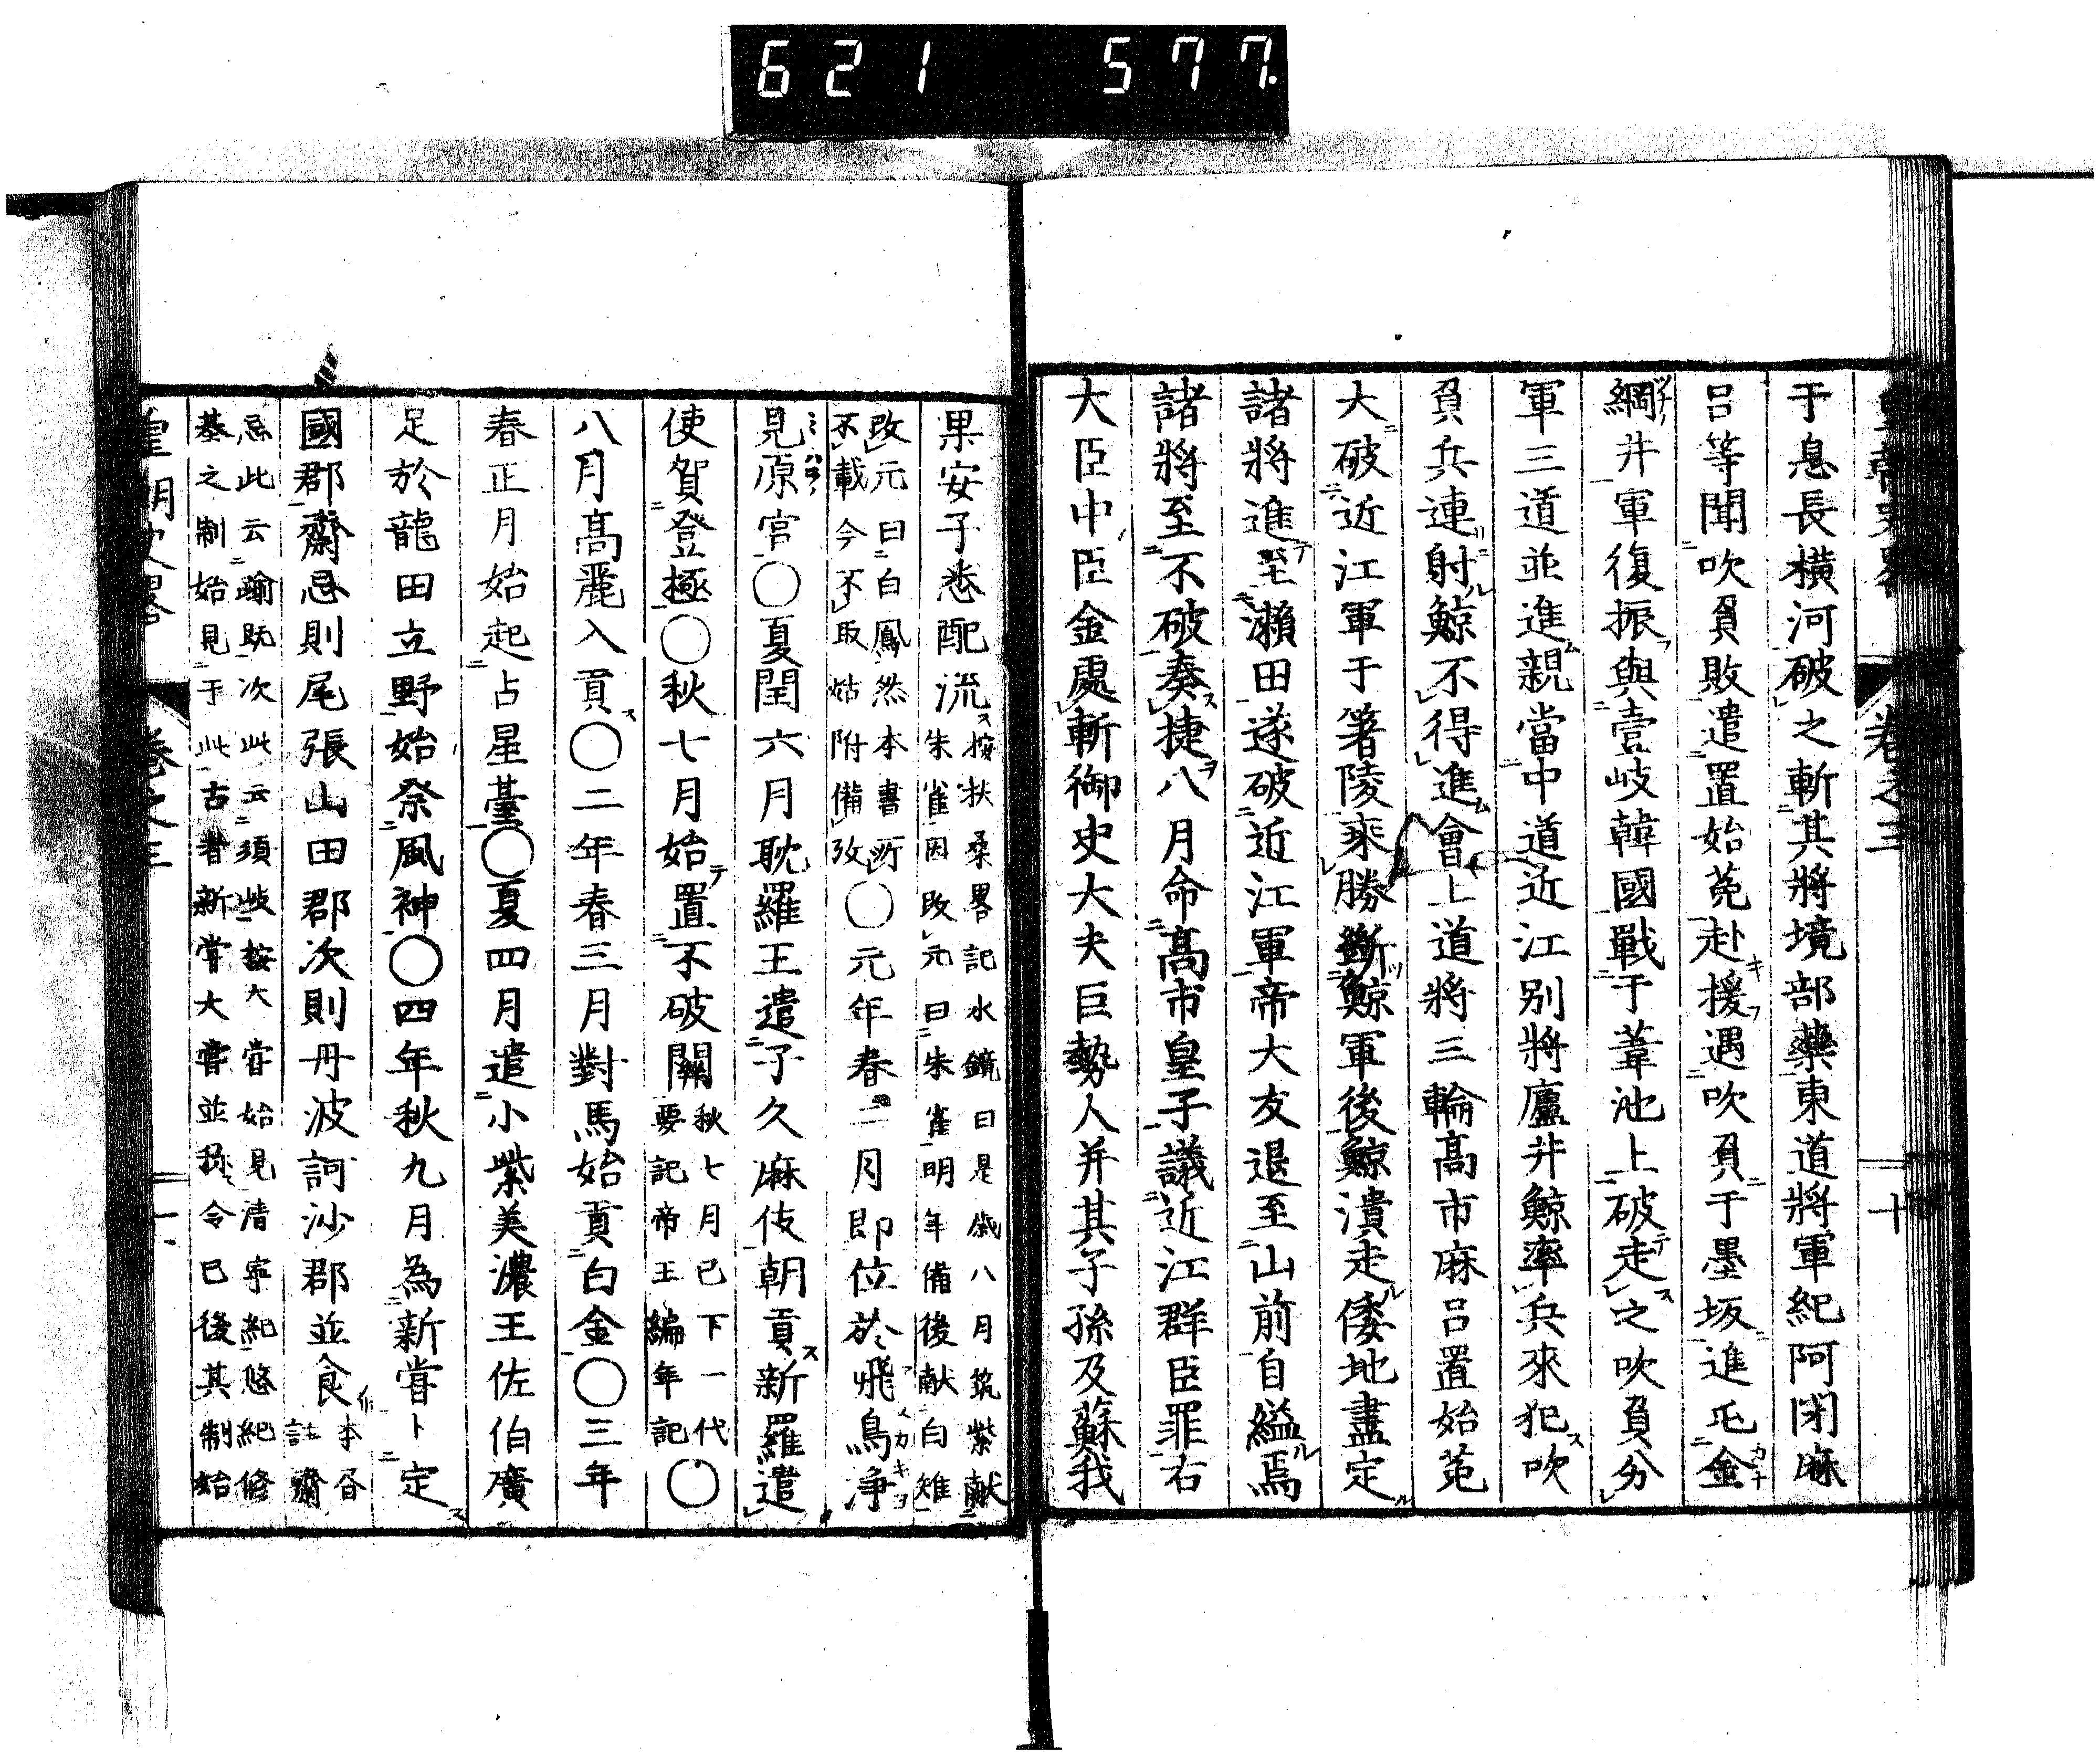 621 577
皇朝史畧 卷之三 十
于息長橫河破之斬其將境部藥東道將軍紀阿閉麻
呂等聞吹負敗遣置始菟赴援遇吹負于墨坂進屯金
綱井軍復振與壹岐韓國戰于葦池上破走之吹負分
軍三道並進親當中道近江別將廬井鯨率兵來犯吹
負兵連射鯨不得進會上道將三輪高市麻呂置始菟
大破近江軍于箸陵乘勝斷鯨軍後鯨潰走倭地盡定
諸將進至瀨田遂破近江軍帝大友退至山前自縊焉
諸將至不破奏捷八月命高市皇子議近江群臣罪右
大臣中臣金處斬御史大夫巨勢人并其子孫及蘇我
果安子悉配流按扶桑畧記水鏡曰是歲八月筑紫献
朱雀因改元曰朱雀明年備後献白雉
改元曰白鳳然本書所
不載今不取姑附備攷〇元年春二月即位於飛鳥淨
見原宮〇夏閏六月耽羅王遣子久麻伎朝貢新羅遣
使賀登極〇秋七月始置不破關秋七月已下一代
要記帝王編年記〇
八月高麗入貢〇二年春三月對馬始貢白金〇三年
春正月始起占星臺〇夏四月遣小紫美濃王佐伯廣
足於龍田立野始祭風神〇四年秋九月為新嘗卜定
國郡齋忌則尾張山田郡次則丹波訶沙郡並食本書
註齋
忌此云踰既次此云須岐按大嘗始見清寧紀悠紀修
基之制始見于此古者新嘗大嘗並稱令已後其制始
皇朝史畧 卷之三